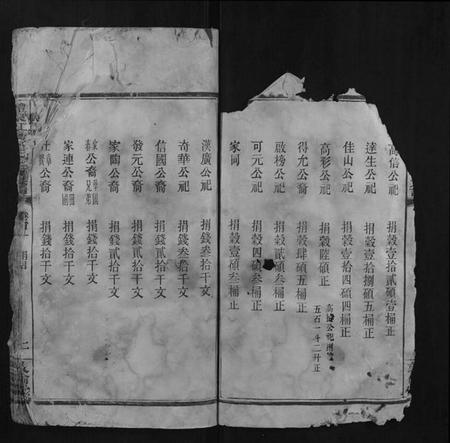 高信公祀 捐穀壹拾貳碩壹桶正
達生公祀 捐穀壹拾捌碩五桶正
佳山公祀 捐穀壹拾四碩四桶正
高彩公祀 捐穀陸碩正
五石一斗二升正
得允公裔 捐穀肆碩五桶正
啟榜公祀 捐穀貳碩叁桶正
可元公祀 捐穀四碩叁桶正
家同 捐穀壹碩叁桶正
漢廣公祀 捐錢叁拾千文
奇華公祀 捐錢叁拾千文
信國公裔 捐錢貳拾千文
發元公裔 捐錢貳拾千文
家陶公裔 捐錢貳拾千文
公裔兄弟 捐錢拾千文
家連公裔 捐錢拾千文
公裔 捐錢拾千文